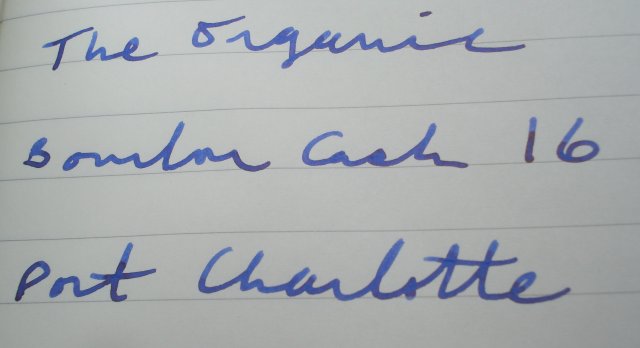 The Organic
Bourbon Cask 16
Port Charlotte